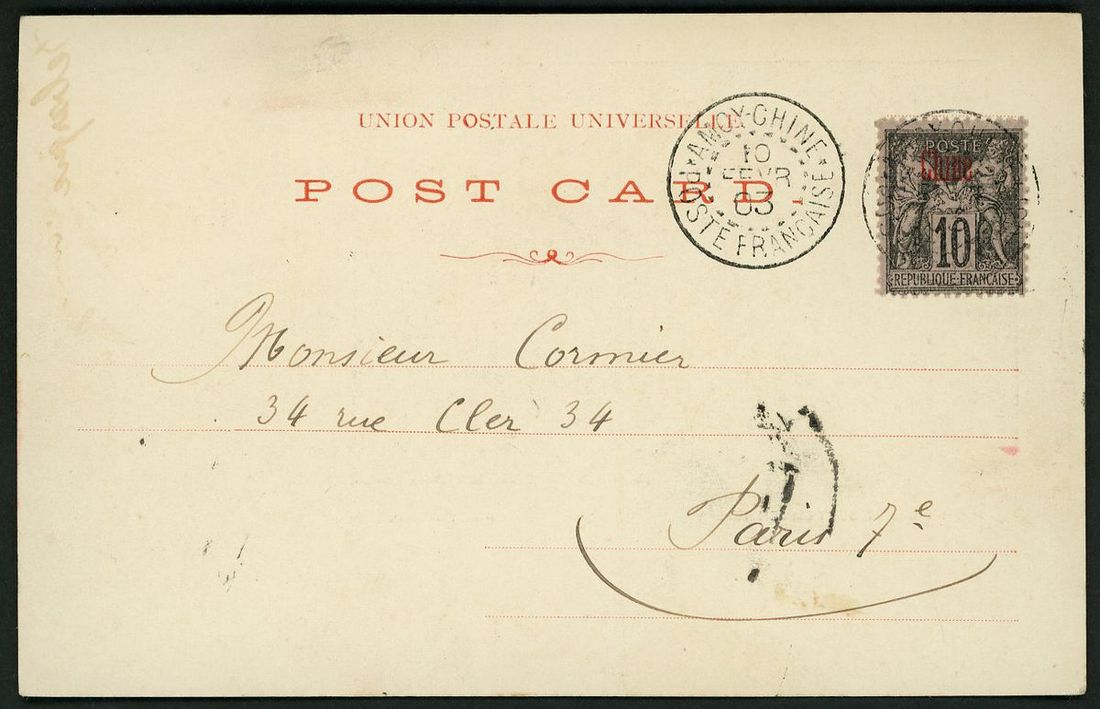 UNION POSTALE UNIVERSELLE
POST CARD.
AMOY-CHINE
10
FEVR
03
POSTE FRANÇAISE
POSTE
Chine
10
REPUBLIQUE FRANÇAISE
Monsieur Cormier
34 rue Cler 34
Paris 7e